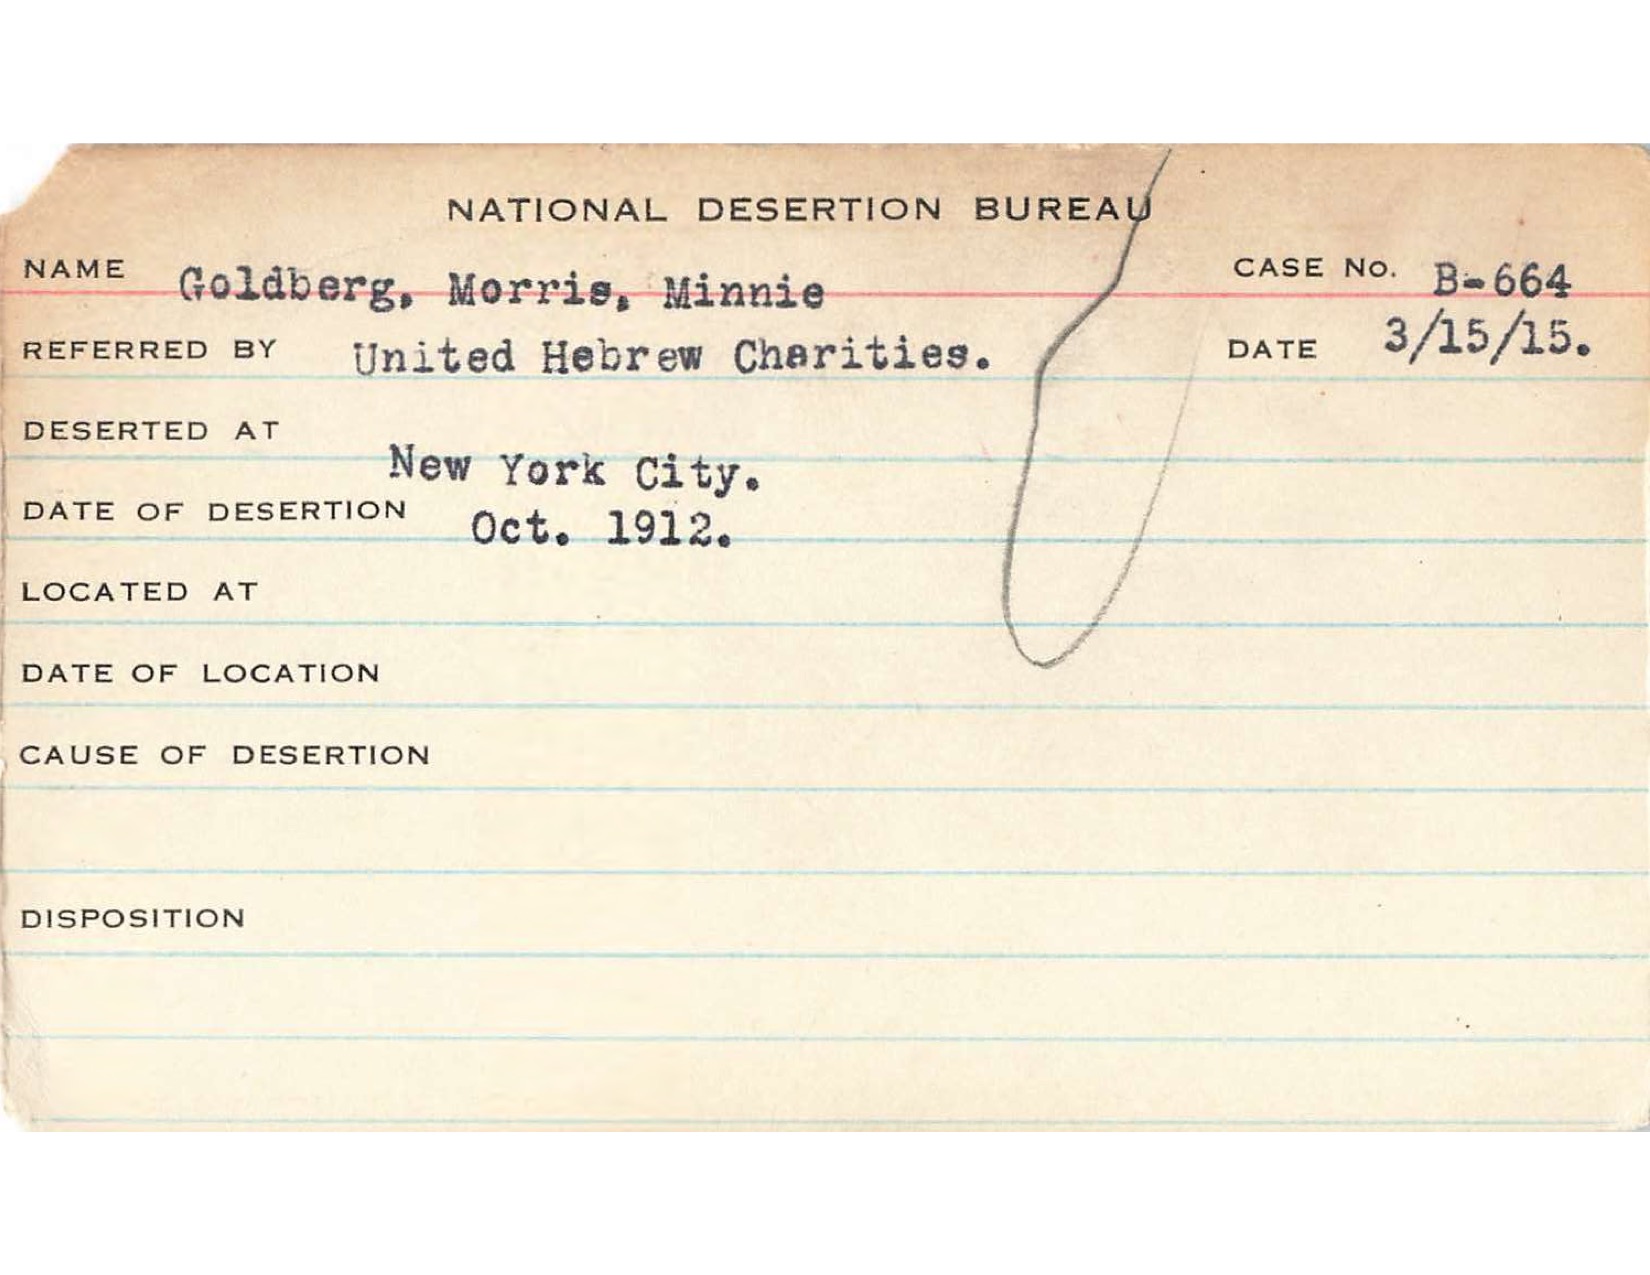 NATIONAL DESERTION BUREAU
NAME Goldberg, Morris, Minnie CASE No. B-664
REFERRED BY United Hebrew Charities. DATE 3/15/15.
DESERTED AT New York City.
DATE OF DESERTION Oct. 1912.
LOCATED AT
DATE OF LOCATION
CAUSE OF DESERTION
DISPOSITION